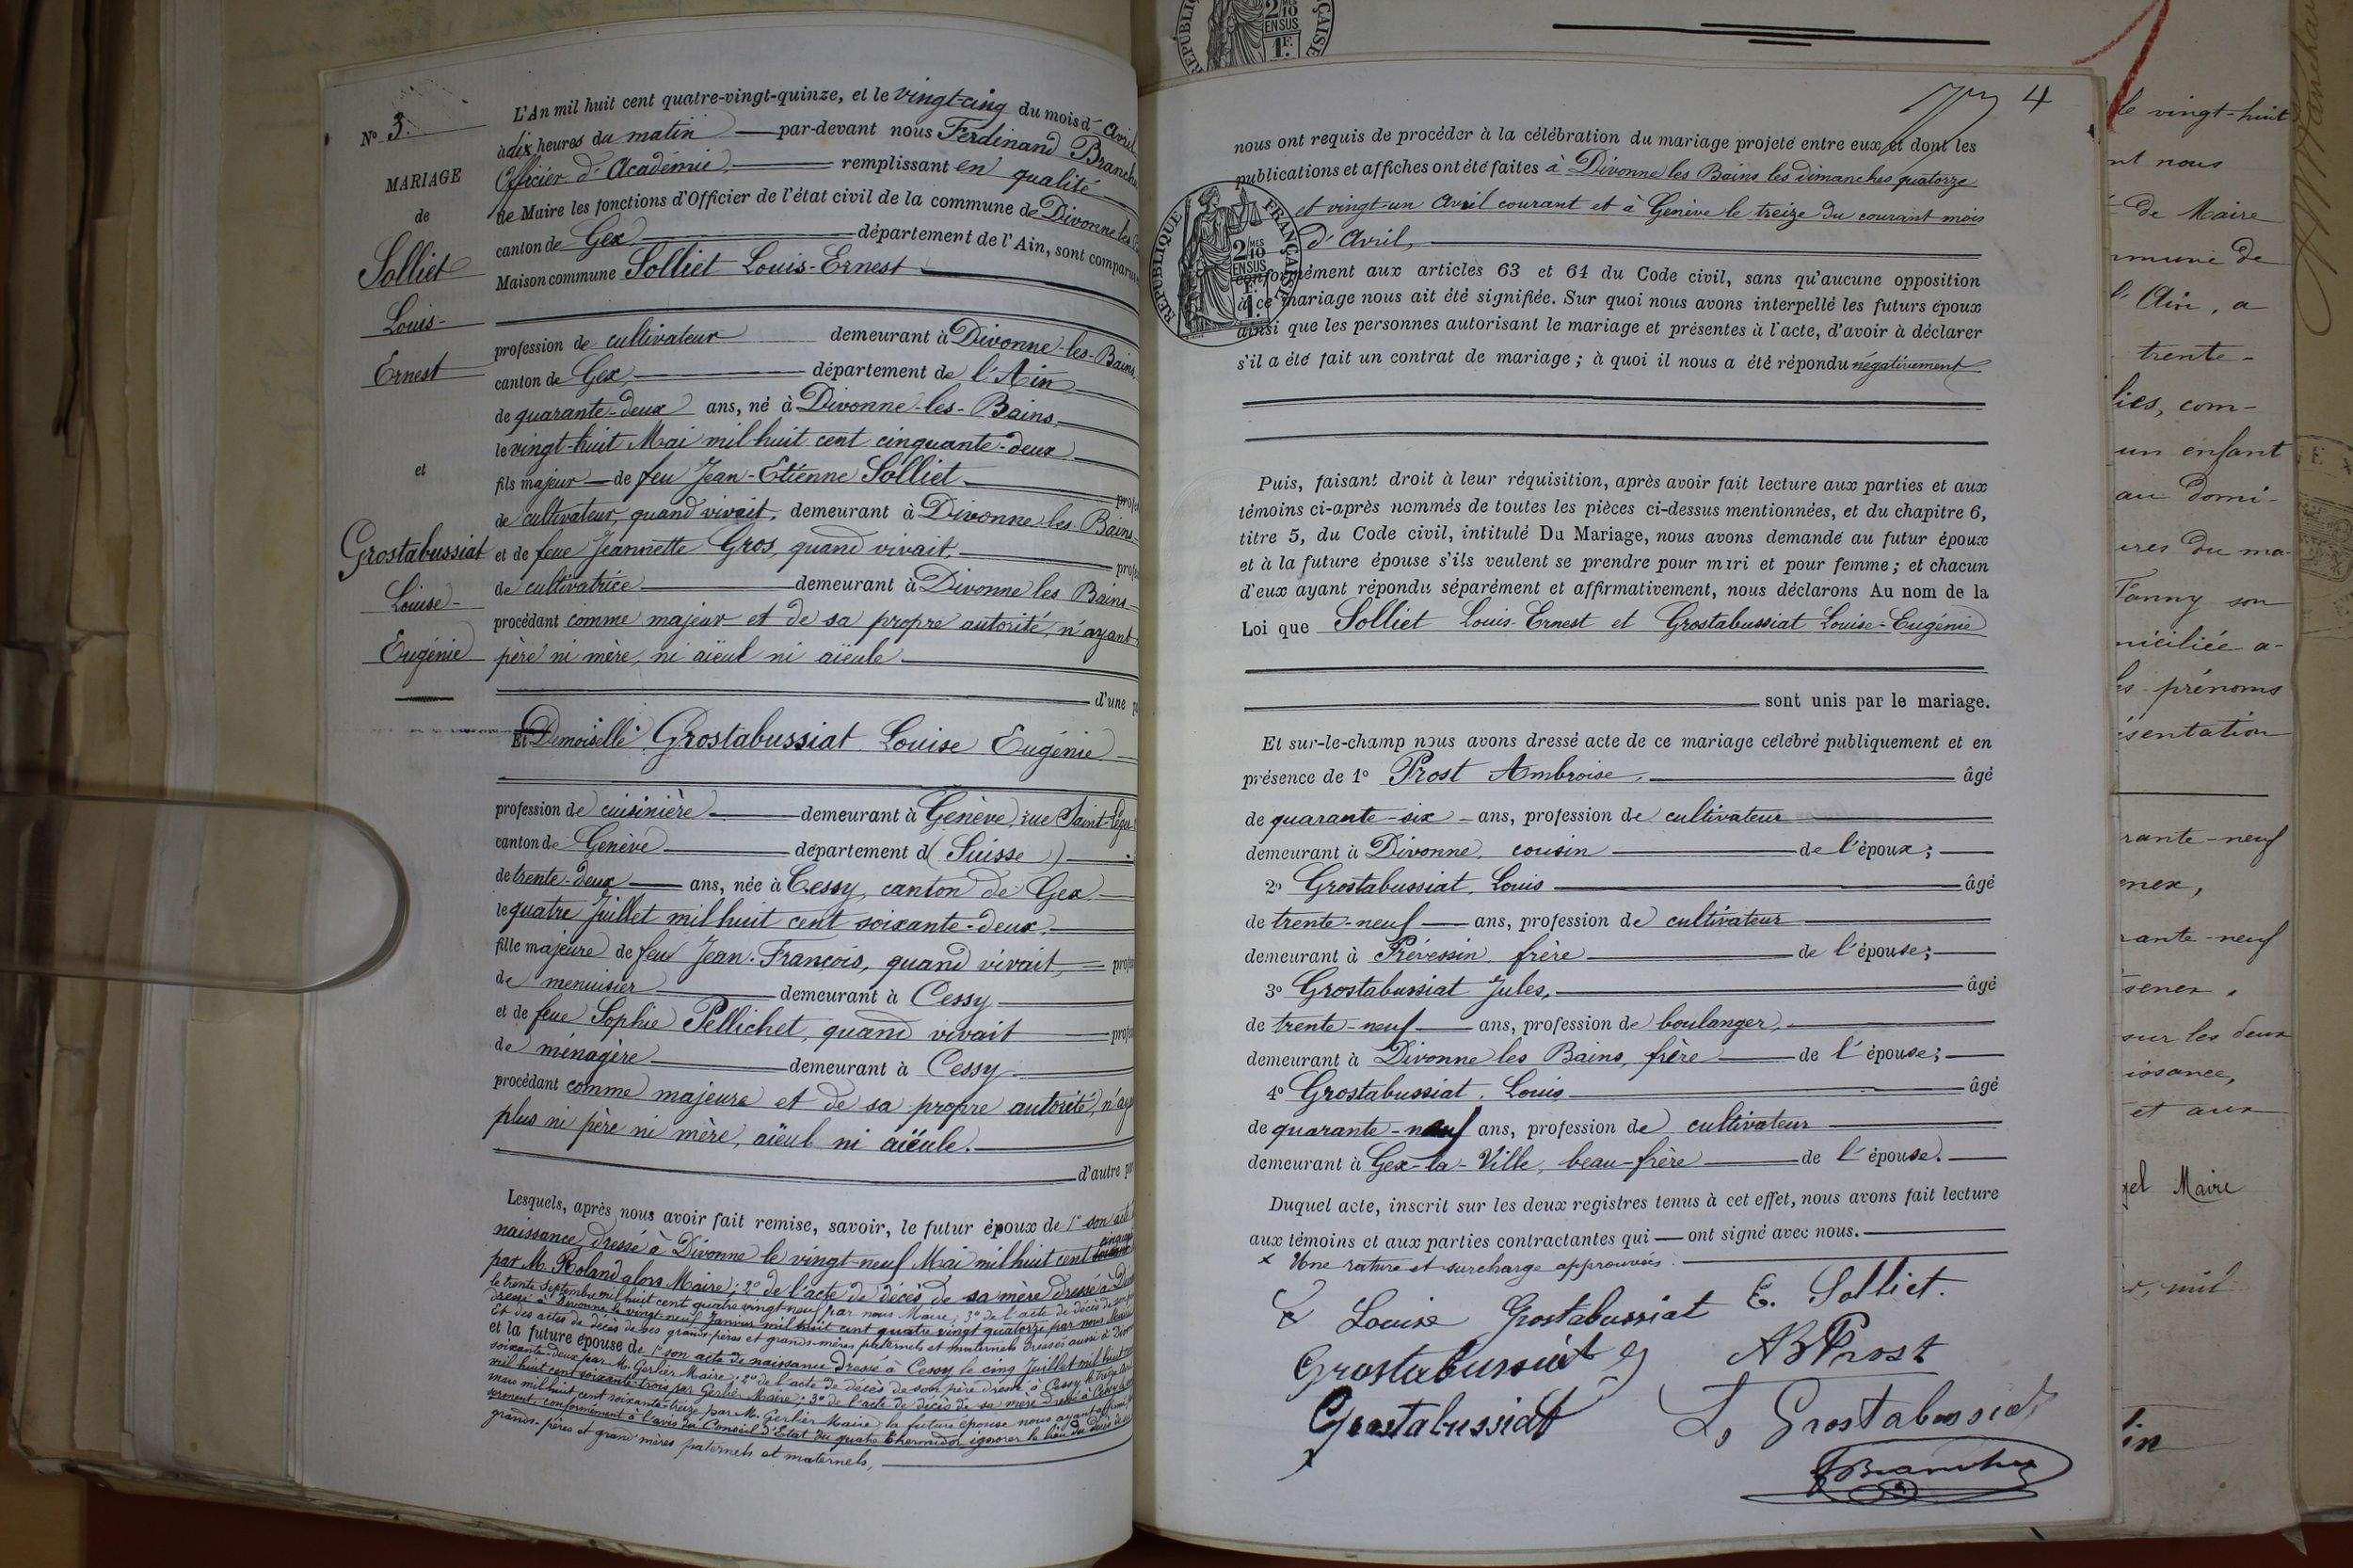 N° 3.
MARIAGE
de
Solliet
Louis-
Ernest
et
Grostabussiat
Louise-
Eugénie
L'An mil huit cent quatre-vingt-quinze, et le vingt-cinq du mois d' Avril
à dix heures du matin par-devant nous Ferdinand
Officier d'Académie remplissant en qualité
de Maire les fonctions d'Officier de l'état civil de la commune de Divonne les
canton de Gex département de l'Ain, sont comparus
Maison commune Solliet Louis-Ernest
profession de cultivateur demeurant à Divonne-les-Bains
canton de Gex, département de l'Ain
de quarante-deux ans, né à Divonne-les-Bains,
le vingt-huit Mai mil huit cent cinquante-deux
fils majeur de feu Jean-Etienne Solliet
de cultivateur, quand vivait, demeurant à Divonne-les-Bains
et de feue Jeannette Gros, quand vivait,
de cultivatrice demeurant à Divonne les Bains
procédant comme majeur et de sa propre autorité, n'ayant
père ni mère, ni aïeul ni aïeule
d'une
Et Demoiselle Grostabussiat Louise Eugénie
profession de cuisinière demeurant à Genève, rue Saint-
canton de Genève département d (Suisse)
de trente-deux ans, née à Cessy, canton de Gex
le quatre Juillet mil huit cent soixante-deux
fille majeure de feu Jean-François, quand vivait,
de menuisier demeurant à Cessy
et de feue Sophie Pellichet, quand vivait
de ménagère demeurant à Cessy
procédant comme majeure et de sa propre autorité,
plus ni père ni mère, aïeul ni aïeule.
d'autre
Lesquels, après nous avoir fait remise, savoir, le futur époux de 1° son acte
naissance dressé à Divonne le vingt-neuf Mai mil huit cent
par M. Roland alors Maire; 2° de l'acte de décès de sa mère dressé à
le trente Septembre mil huit cent quatre vingt-neuf par nous Maire, 3° de l'acte de décès de son
dressé à Divonne le vingt-neuf Janvier mil huit cent quatre vingt quatorze par nous
Et des actes de décès de ses grands-pères et grands-mères paternels et maternels dressés aussi à
et la future épouse de 1° son acte de naissance dressé à Cessy le cinq Juillet mil huit
soixante-deux par M. Gerlier Maire; 2° de l'acte de décès de son père dressé à Cessy le
mil huit cent soixante-trois par Gerlier Maire; 3° de l'acte de décès de sa mère dressé à Cessy
mars mil huit cent soixante-treize par M. Gerlier Maire, la future épouse nous ayant affirmé
serment, conformément à l'avis du Conseil d'Etat du quatre thermidor, ignorer le lieu du décès de
grands-pères et grand'mères paternels et maternels,
4
nous ont requis de procéder à la célébration du mariage projeté entre eux, et dont les
publications et affiches ont été faites à Divonne les Bains les dimanches quatorze
et vingt-un Avril courant et à Genève le treize du courant mois
d'Avril,
conformément aux articles 63 et 64 du Code civil, sans qu'aucune opposition
à ce mariage nous ait été signifiée. Sur quoi nous avons interpellé les futurs époux
ainsi que les personnes autorisant le mariage et présentes à l'acte, d'avoir à déclarer
s'il a été fait un contrat de mariage; à quoi il nous a été répondu négativement
RÉPUBLIQUE FRANÇAISE
2/10MES
ENSUS
1F.
Puis, faisant droit à leur réquisition, après avoir fait lecture aux parties et aux
témoins ci-après nommés de toutes les pièces ci-dessus mentionnées, et du chapitre 6,
titre 5, du Code civil, intitulé Du Mariage, nous avons demandé au futur époux
et à la future épouse s'ils veulent se prendre pour mari et pour femme; et chacun
d'eux ayant répondu séparément et affirmativement, nous déclarons Au nom de la
Loi que Solliet Louis-Ernest et Grostabussiat Louise-Eugénie
sont unis par le mariage.
Et sur-le-champ nous avons dressé acte de ce mariage célébré publiquement et en
présence de 1° Prost Ambroise, âgé
de quarante-six ans, profession de cultivateur
demeurant à Divonne, cousin de l'époux;
2° Grostabussiat, Louis âgé
de trente-neuf ans, profession de cultivateur
demeurant à Prévessin, frère de l'épouse;
3° Grostabussiat Jules, âgé
de trente-neuf ans, profession de boulanger,
demeurant à Divonne les Bains, frère de l'épouse;
4° Grostabussiat, Louis âgé
de quarante-neuf ans, profession de cultivateur
demeurant à Gex-la-Ville, beau-frère de l'épouse.
Duquel acte, inscrit sur les deux registres tenus à cet effet, nous avons fait lecture
aux témoins et aux parties contractantes qui ont signé avec nous.
x Une rature et surcharge approuvées.
Louise Grostabussiat E. Solliet.
Grostabussiat J Prost
Grostabussiat L, Grostabussiat
le vingt-huit
nt nous
de Maire
mmune de
l'Ain, a
trente-
lies, com-
un enfant
au domi-
ures du ma-
Fanny son
miciliée a-
les prénoms
ésentation
rante-neuf
enex,
rante-neuf
senex,
sur les deux
issance,
et aux
Maire
mil